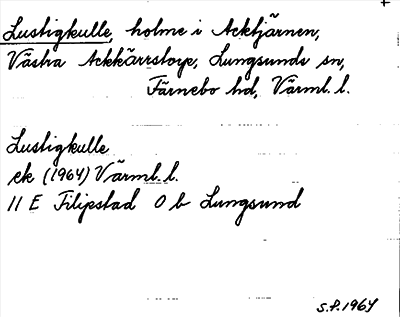 +
Lustigkulle, holme i Acktjärnen,
Västra Ackkärrstorp, Lungsunds sn,
Färnebo hd, Värml. l.
Lustigkulle
ek (1964) Värml. l.
11 E Filipstad 0 b Lungsund
S.P. 1964